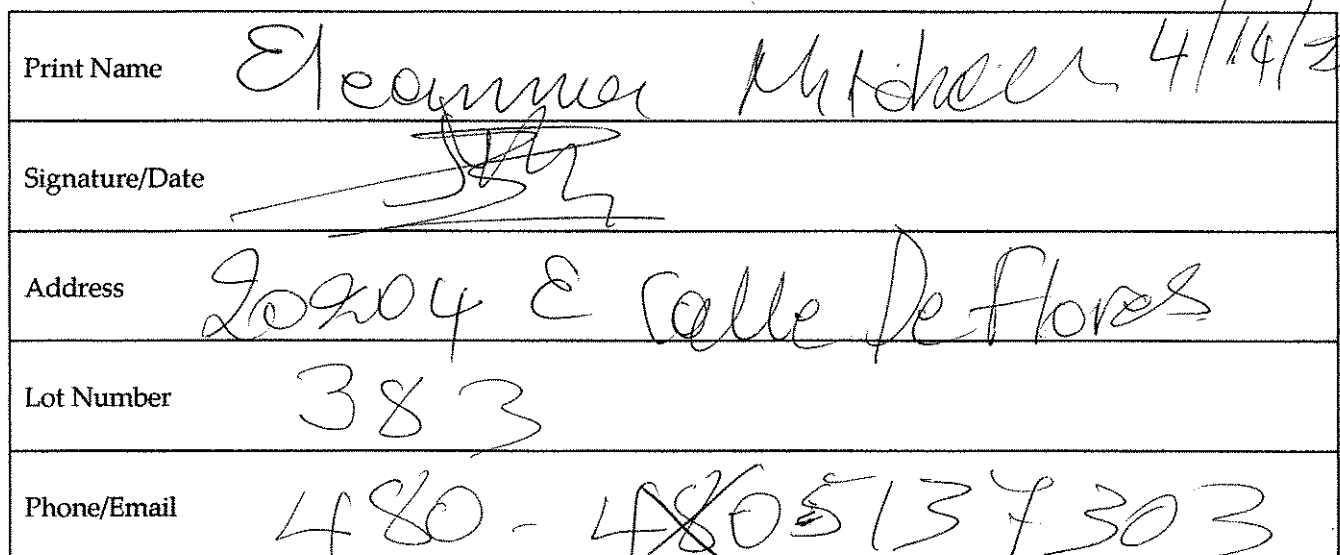 Print Name Eleannor Mitchell 4/14/2
Signature/Date
Address 20204 E Calle De Flores
Lot Number 383
Phone/Email 480-4805137303